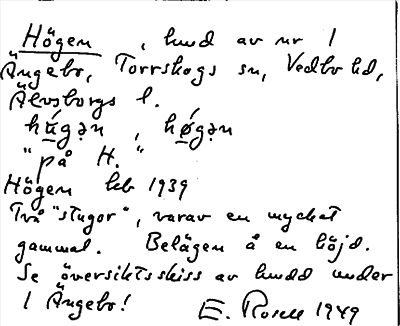 Högen, hmd av nr 1
Ängebo, Torrskogs sn, Vedbo hd,
Älvsborgs l.
hǘgən, hǿgən
"på H."
Högen kb 1939
Två "stugor", varav en mycket
gammal. Belägen å en höjd.
Se översiktsskiss av hmdd under
1 Ängebo! E. Rosell 1949